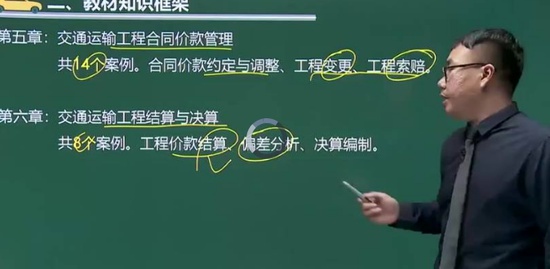 二、教材知识框架
第五章：交通运输工程合同价款管理
共14个案例。合同价款约定与调整、工程变更、工程索赔。
第六章：交通运输工程结算与决算
共8个案例。工程价款结算、偏差分析、决算编制。